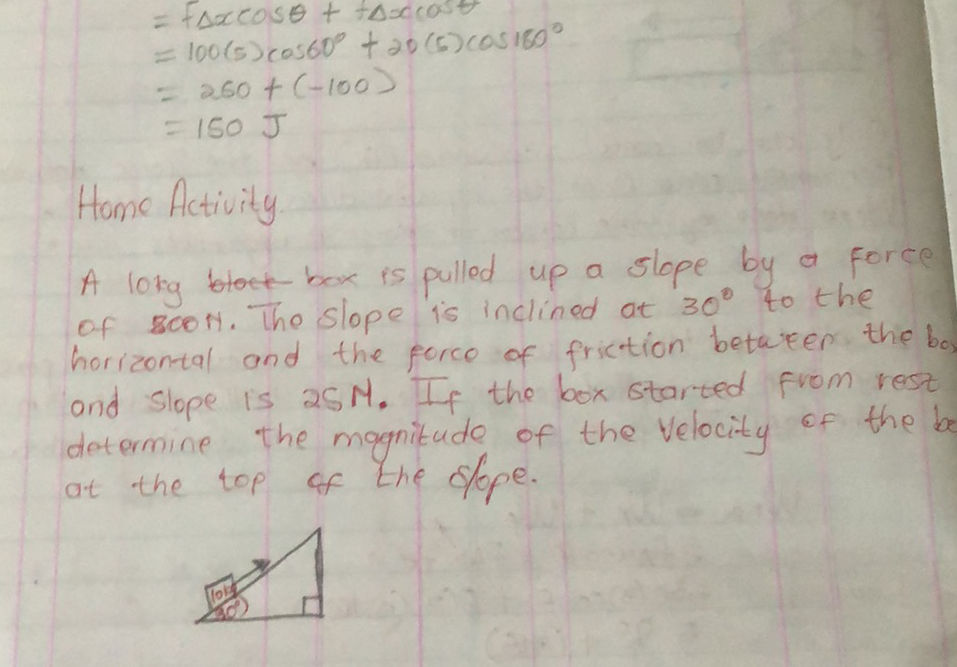 = FΔxcosθ + fΔxcosθ
= 100(5)cos60° + 20(5)cos180°
= 250 + (-100)
= 150 J
Home Activity.
A 10kg block box is pulled up a slope by a force
of 800N. The slope is inclined at 30° to the
horizontal and the force of friction between the bo
and slope is 25N. If the box started from rest
determine the magnitude of the velocity of the bo
at the top of the slope.
10kg
30°